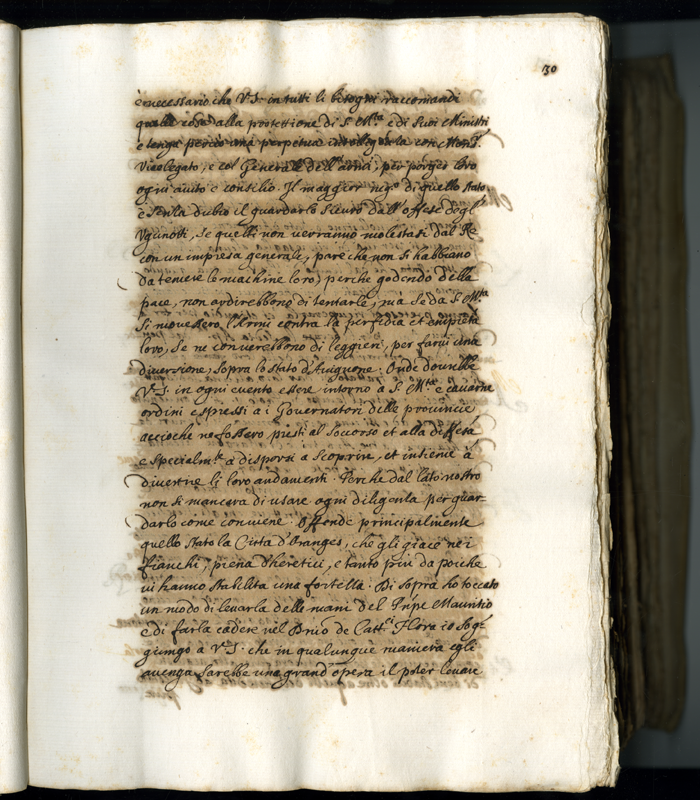 30
è necessario che V.S. in tutti li bisogni raccomandi
quelle cose alla protettione di S. Mta e di suoi Ministri
e tenga perciò una perpetua intelligenza con Monsr.
Vicelegato, e col Generale dell'armi, per porger loro
ogni aiuto e consilio. Il maggior nego. di quello stato
è senza dubio il guardarlo sicuro dall'offese degl'
Vgunotti, se quelli non verranno molestati dal Re
con un impresa generale, pare che non si habbiano
da temere le machine loro, perche godendo della
pace, non ardirebbono di tentarle, ma se da S. Mta
si movessero l'Armi contra la perfidia et empietà
loro, se ne converebbono di leggieri, per farvi una
diversione, sopra lo stato d'Avignone. Onde dovrebbe
V.S. in ogni evento essere intorno a S. Mta e cavarne
ordini espressi a i Governatori delle provincie
accioche ne fossero presti al soccorso et alla diffesa
e specialmte a disporsi a scoprire, et insieme à
divertire li loro andamenti. Perche dal lato nostro
non si mancara di usare ogni diligenza per guar-
darlo come conviene. Offende principalmente
quello stato la Città d'Oranges, che gli giace ne i
fianchi, piena d'heretici, e tanto più da poiche
vi hanno stabilita una fortezza. Di sopra ho toccato
un modo di levarla delle mani del Prnpe Mauritio
e di farla cadere nel di Cattci Hora io sog-
giungo a V.S. che in qualunque maniera egli
avenga sarebbe una grand'opera il poter levare